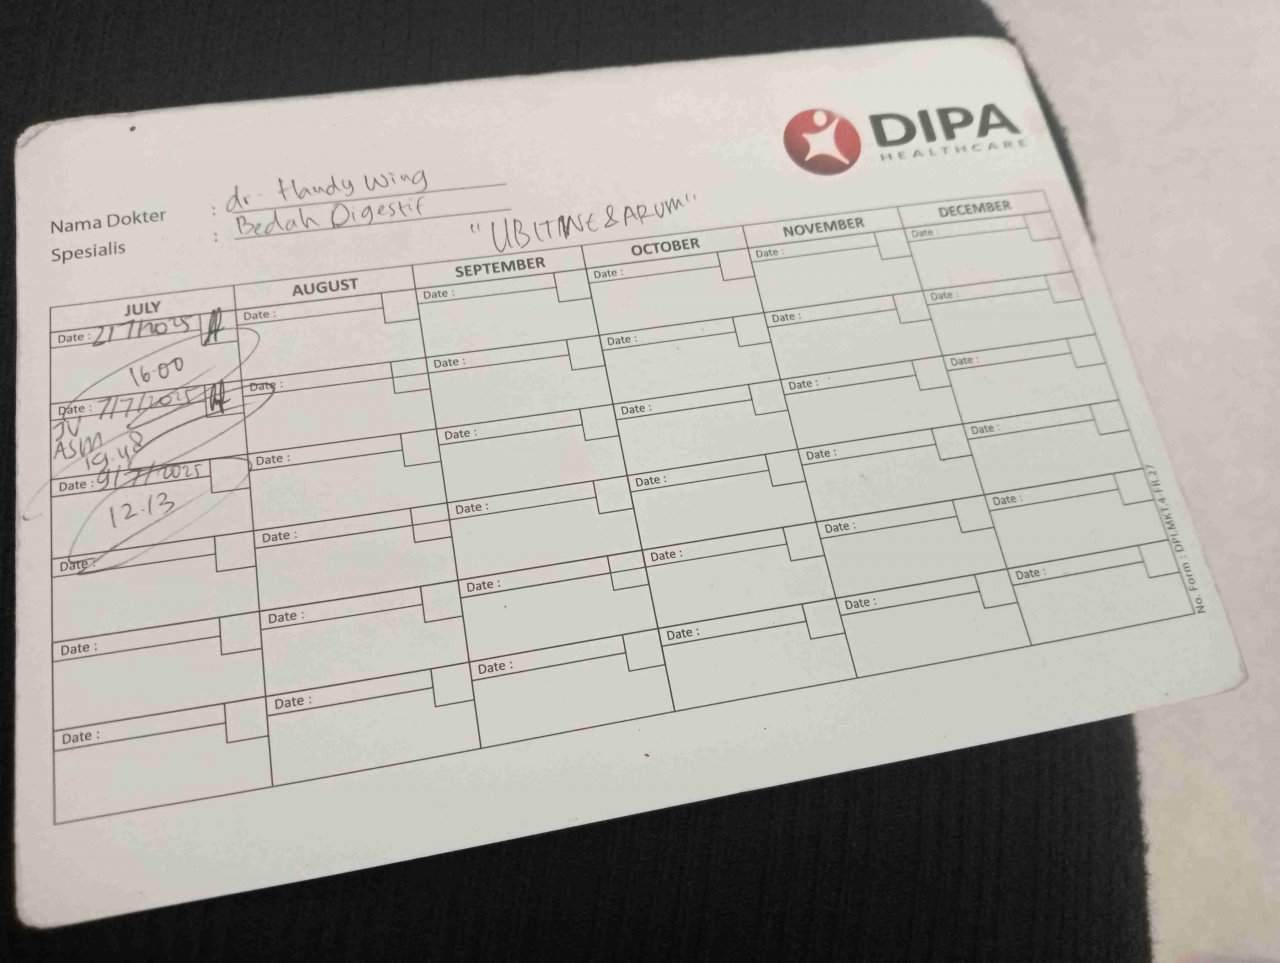 DIPA
HEALTHCARE
Nama Dokter : dr. Handy Wing
Spesialis : Bedah Digestif
"UBITINE & ARUM"
JULY AUGUST SEPTEMBER OCTOBER NOVEMBER DECEMBER
Date : 2/7/2025 Date : Date : Date : Date : Date :
16.00
Date : 7/7/2025 Date : Date : Date : Date : Date :
JV
ASM
19.48
Date : 9/7/2025 Date : Date : Date : Date : Date :
12.13
Date : Date : Date : Date : Date : Date :
Date : Date : Date : Date : Date : Date :
Date : Date : Date : Date : Date : Date :
No. Form : DPI.MKT.4.FR.27